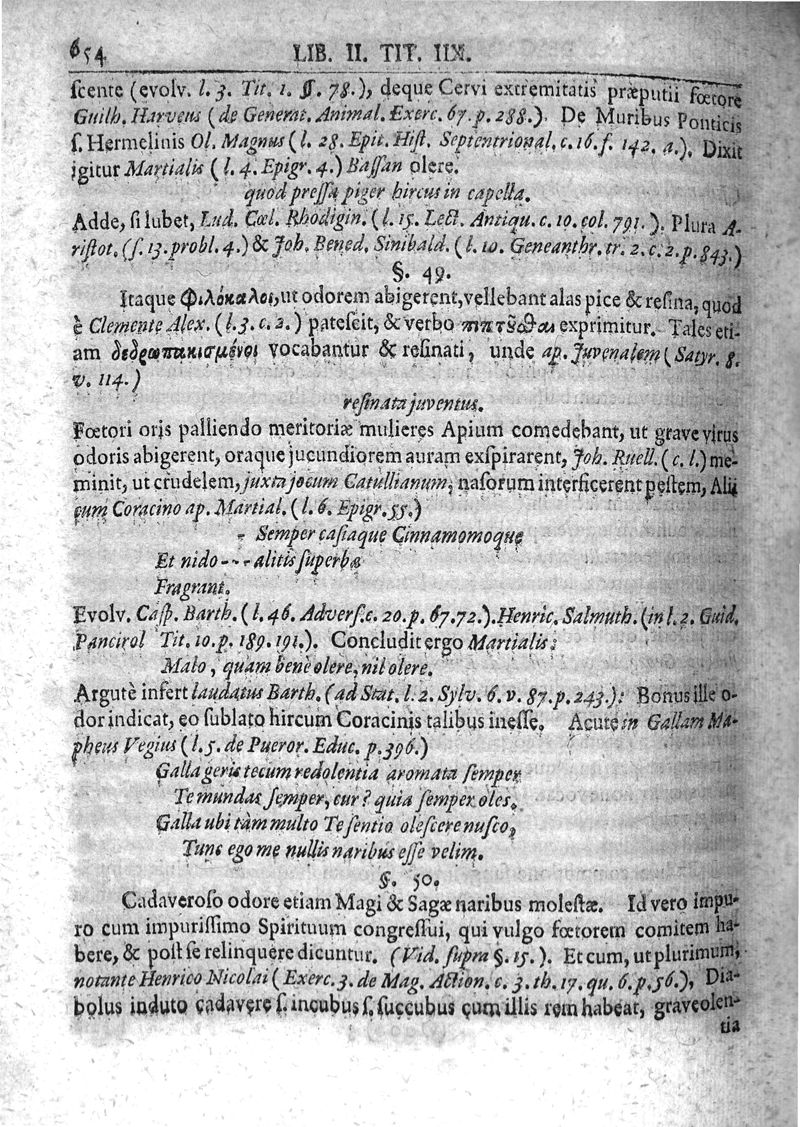 654 LIB. II. TIT. IIX.
ſcente (evolv. l. 3. Tit. 1. §. 78.), deque Cervi extremitatis præputii fœtore
Guilh. Harveus (de Generat. Animal. Exerc. 67. p. 288.). De Muribus Ponticis
ſ. Hermelinis Ol. Magnus (l. 28. Epit. Hiſt. Septentrional. c. 16. f. 142. a.). Dixit
igitur Martialis (l. 4. Epigr. 4.) Baſſan olere.
quod preſſa piger hircus in capella.
Adde, ſi lubet, Lud. Cœl. Rhodigin. (l. 15. Lect. Antiqu. c. 10. col. 791.). Plura A-
riſtot. (ſ. 13. probl. 4.) & Joh. Bened. Sinibald. (l. 10. Geneanthr. tr. 2. c. 2. p. 843.)
§. 49.
Itaque Φιλόκαλοι, ut odorem abigerent, vellebant alas pice & reſina, quod
è Clemente Alex. (l. 3. c. 2.) pateſcit, & verbo πιττȣ̃ϑαι exprimitur. Tales eti-
am δεδρωπακισμένοι vocabantur & reſinati, unde ap. Juvenalem (Satyr. 8.
v. 114.)
reſinata juventus.
Fœtori oris palliendo meritoriæ mulieres Apium comedebant, ut grave virus
odoris abigerent, oraque jucundiorem auram exſpirarent, Joh. Ruell. (c. l.) me-
minit, ut crudelem, juxta jocum Catullianum, naſorum interficerent peſtem, Alii
cum Coracino ap. Martial. (l. 6. Epigr. 55.)
- Semper caſiaque Cinnamomoque
Et nido - - - alitis ſuperbæ
Fragrant.
Evolv. Caſp. Barth. (l. 46. Adverſ. c. 20. p. 67. 72.). Henric. Salmuth. (in l. 2. Guid.
Pancirol Tit. 10. p. 189. 191.). Concludit ergo Martialis:
Malo, quam bene olere, nil olere.
Argutè infert laudatus Barth. (ad Stat. l. 2. Sylv. 6. v. 87. p. 243.): Bonus ille o-
dor indicat, eo ſublato hircum Coracinis talibus ineſſe. Acute in Gallam Ma-
pheus Vegius (l. 5. de Pueror. Educ. p. 396.)
Galla geris tecum redolentia aromata ſemper
Te mundas ſemper, cur? quia ſemper oles.
Galla ubi tàm multo Te ſentio oleſcere nuſco,
Tunc ego me nullis naribus eſſe velim.
§. 50.
Cadaveroſo odore etiam Magi & Sagæ naribus moleſtæ. Id vero impu-
ro cum impuriſſimo Spirituum congreſſui, qui vulgo fœtorem comitem ha-
bere, & poſt ſe relinquere dicuntur. (Vid. ſupra §. 15.). Et cum, ut plurimum,
notante Henrico Nicolai (Exerc. 3. de Mag. Action. c. 3. th. 17. qu. 6. p. 56.), Dia-
bolus induto cadavere ſ. incubus ſ. ſuccubus cum illis rem habeat, graveolen-
tia